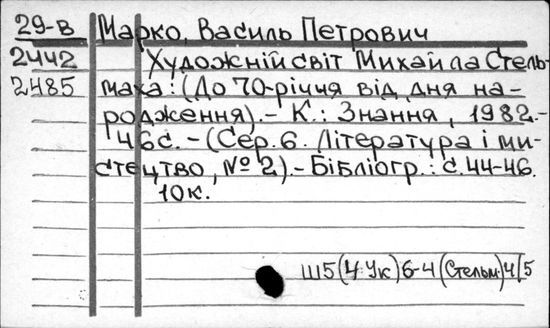 29-в Марко, Василь Петрович
2442 Художній світ Михайла Стель-
2485 маха: (До 70-річчя від дня на-
родження).- К.: Знання, 1982.-
46с. - (Сер. 6. Література і ми-
стецтво, №2).- Бібліогр.: с.44-46.
10к.
Ш5(4Ук)6-4(Стельм)4/5